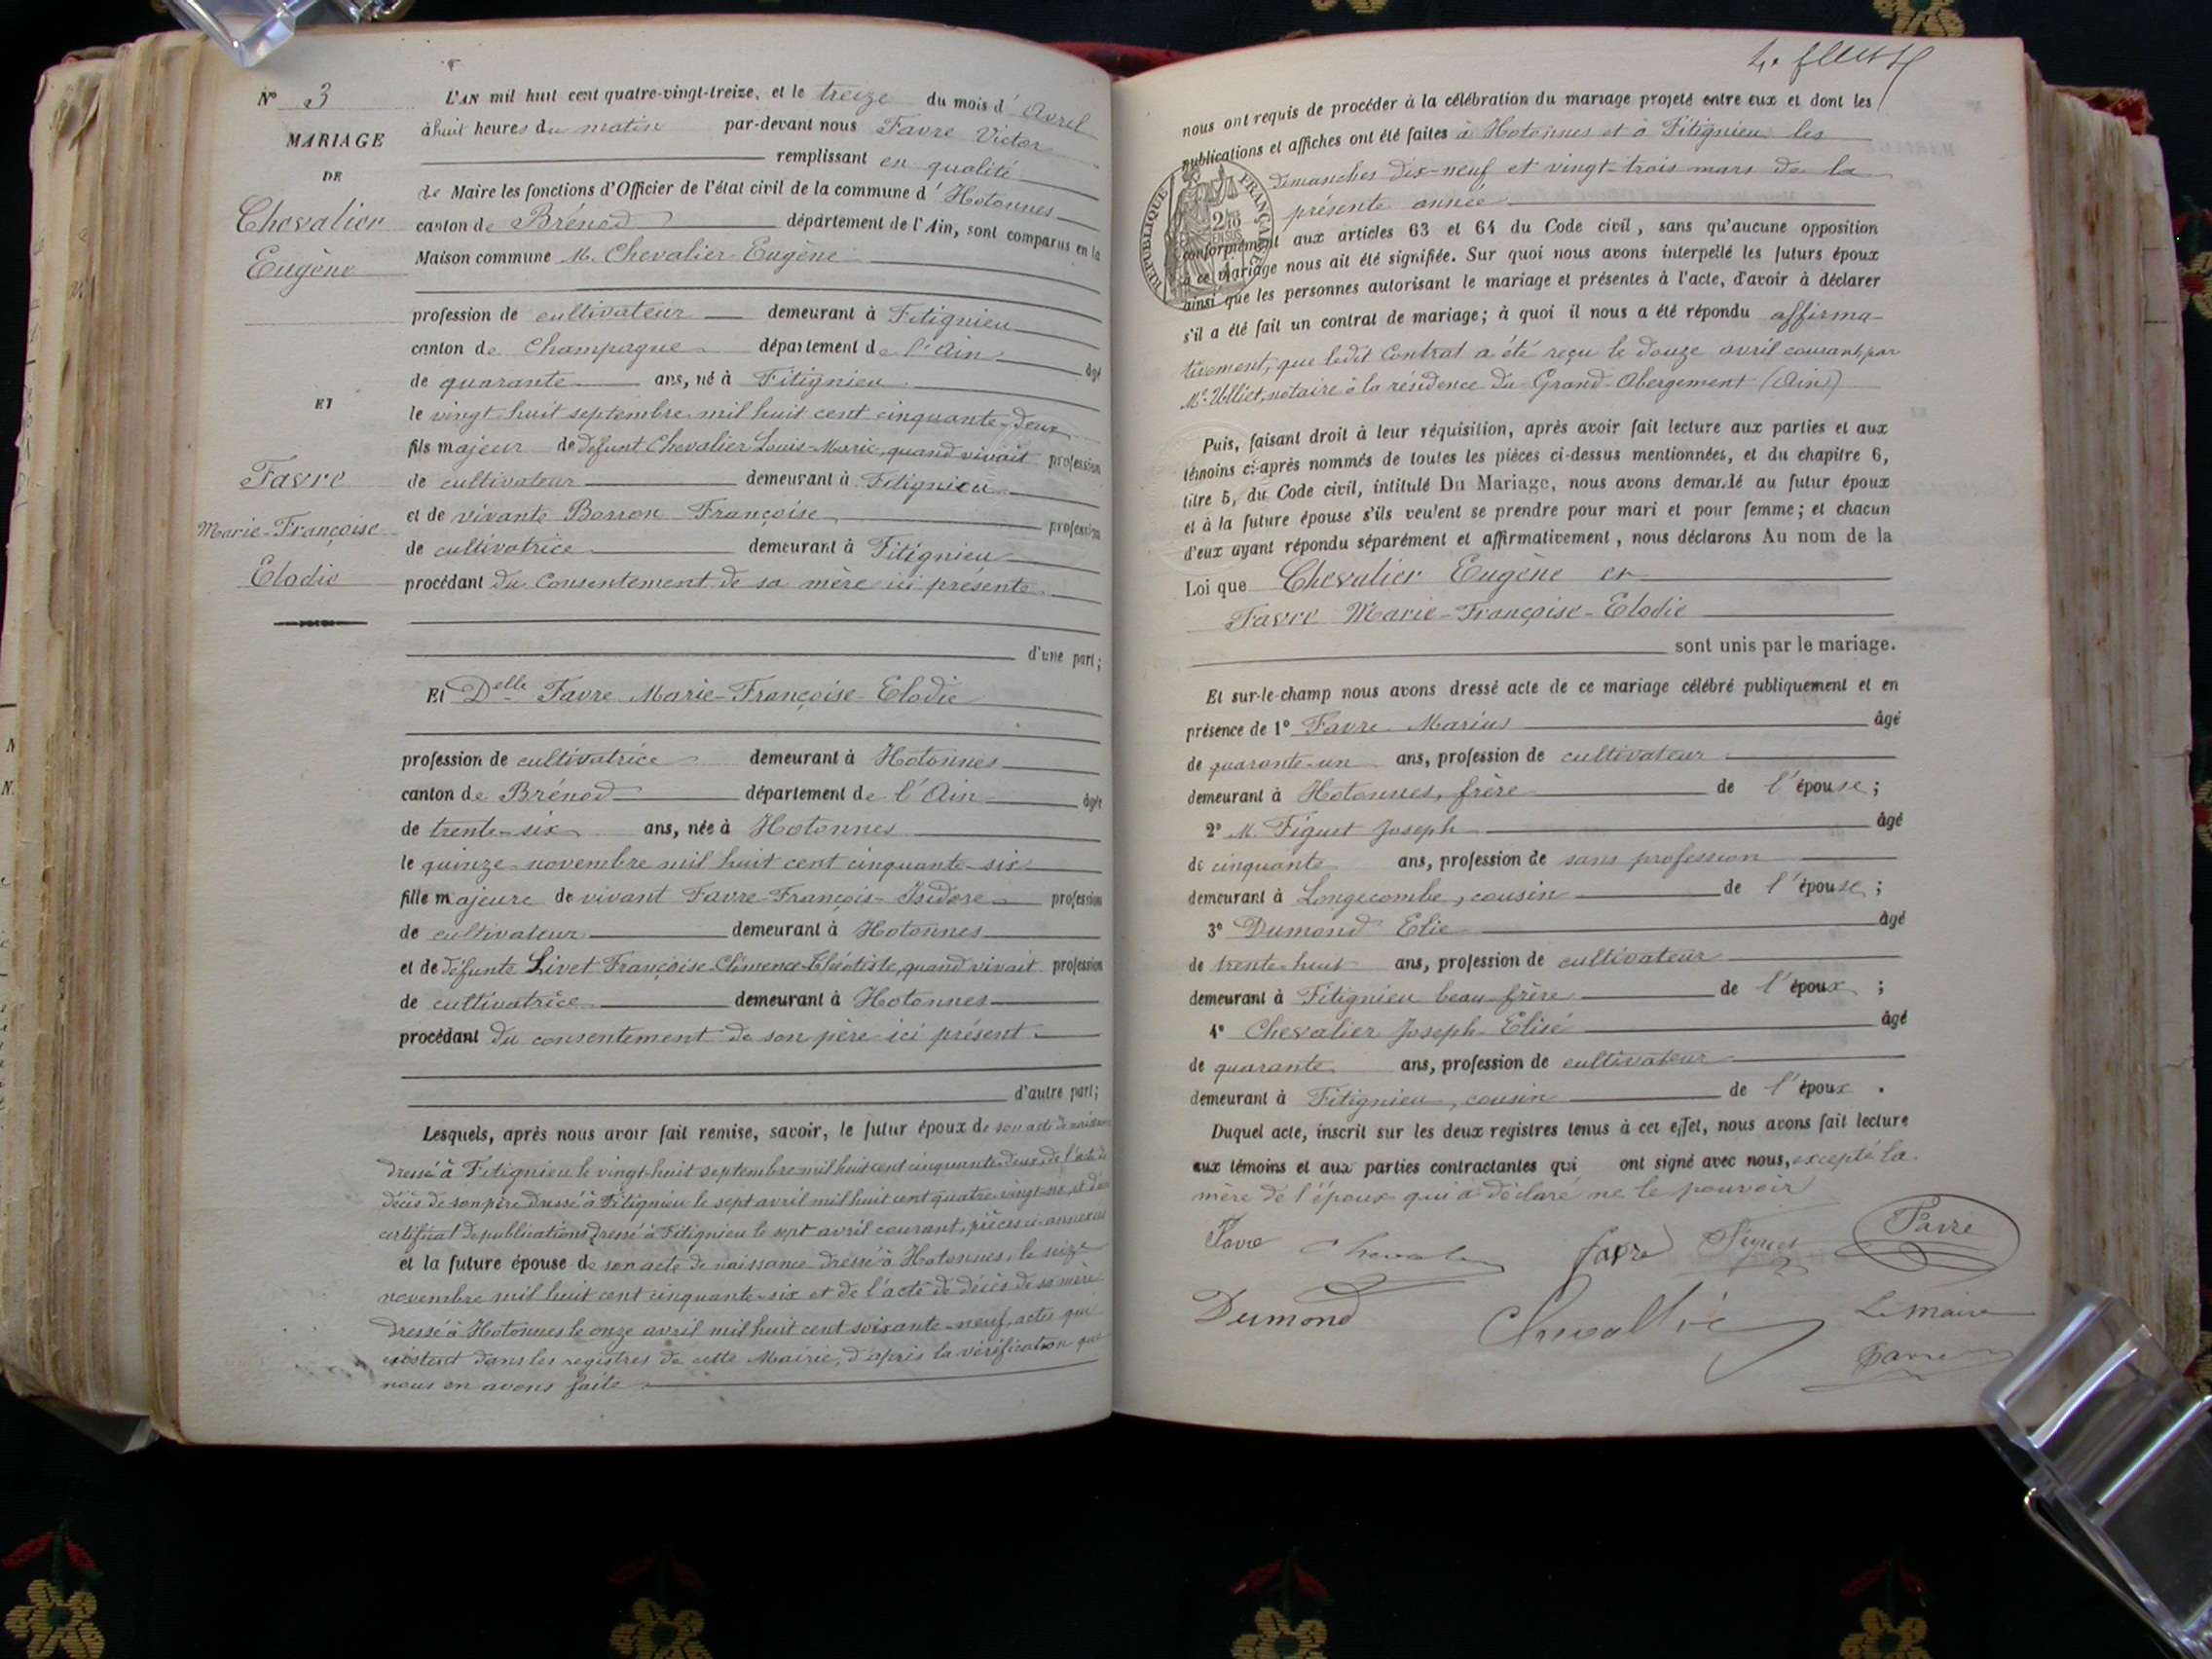 N° 3
MARIAGE
DE
Chevalier
Eugène
ET
Favre
Marie-Françoise
Elodie
L'AN mil huit cent quatre-vingt-treize, et le treize du mois d'Avril
à huit heures du matin par-devant nous Favre Victor
remplissant en qualité
de Maire les fonctions d'Officier de l'état civil de la commune d'Hotonnes
canton de Brénod département de l'Ain, sont comparus en la
Maison commune M. Chevalier Eugène
profession de cultivateur demeurant à Fitignieu
canton de Champagne département de l'Ain âgé
de quarante ans, né à Fitignieu
le vingt-huit septembre mil huit cent cinquante-deux
fils majeur de défunt Chevalier Louis-Marie, quand vivait profession
de cultivateur demeurant à Fitignieu
et de vivante Borron Françoise profession
de cultivatrice demeurant à Fitignieu
procédant du consentement de sa mère ici présente
d'une part;
Et Delle Favre Marie-Françoise-Elodie
profession de cultivatrice demeurant à Hotonnes
canton de Brénod département de l'Ain âgée
de trente-six ans, née à Hotonnes
le quinze novembre mil huit cent cinquante-six
fille majeure de vivant Favre François-Isidore profession
de cultivateur demeurant à Hotonnes
et de défunte Livet Françoise-Clémence quand vivait profession
de cultivatrice demeurant à Hotonnes
procédant du consentement de son père ici présent
d'autre part;
Lesquels, après nous avoir fait remise, savoir, le futur époux de son acte de naissance
dressé à Fitignieu le vingt-huit septembre mil huit cent cinquante-deux, de l'acte de
décès de son père dressé à Fitignieu le sept avril mil huit cent quatre-vingt et du
certificat de publications dressé à Fitignieu le sept avril courant, pièces ci-annexées
et la future épouse de son acte de naissance dressé à Hotonnes, le seize
novembre mil huit cent cinquante-six et de l'acte de décès de sa mère
dressé à Hotonnes le onze avril mil huit cent soixante-neuf, actes qui
existent dans les registres de cette Mairie, d'après la vérification que
nous en avons faite
nous ont requis de procéder à la célébration du mariage projeté entre eux et dont les
publications et affiches ont été faites à Hotonnes et à Fitignieu les
dimanches dix-neuf et vingt-trois mars de la
présente année
RÉPUBLIQUE FRANÇAISE
conformément aux articles 63 et 64 du Code civil, sans qu'aucune opposition
à ce mariage nous ait été signifiée. Sur quoi nous avons interpellé les futurs époux
ainsi que les personnes autorisant le mariage et présentes à l'acte, d'avoir à déclarer
s'il a été fait un contrat de mariage; à quoi il nous a été répondu affirma-
tivement, que ledit Contrat a été reçu le douze avril courant, par
Me Ulliet, notaire à la résidence du Grand-Abergement (Ain)
Puis, faisant droit à leur réquisition, après avoir fait lecture aux parties et aux
témoins ci-après nommés de toutes les pièces ci-dessus mentionnées, et du chapitre 6,
titre 5, du Code civil, intitulé Du Mariage, nous avons demandé au futur époux
et à la future épouse s'ils veulent se prendre pour mari et pour femme; et chacun
d'eux ayant répondu séparément et affirmativement, nous déclarons Au nom de la
Loi que Chevalier Eugène et
Favre Marie-Françoise-Elodie
sont unis par le mariage.
Et sur-le-champ nous avons dressé acte de ce mariage célébré publiquement et en
présence de 1° Favre Marius âgé
de quarante-un ans, profession de cultivateur
demeurant à Hotonnes, frère de l'épouse;
2° M. Figuet Joseph âgé
de cinquante ans, profession de sans profession
demeurant à Longecombe, cousin de l'épouse;
3° Dumond Elie âgé
de trente-huit ans, profession de cultivateur
demeurant à Fitignieu beau-frère de l'époux;
4° Chevalier Joseph Elisé âgé
de quarante ans, profession de cultivateur
demeurant à Fitignieu, cousin de l'époux.
Duquel acte, inscrit sur les deux registres tenus à cet effet, nous avons fait lecture
aux témoins et aux parties contractantes qui ont signé avec nous, excepté la
mère de l'époux qui a déclaré ne le pouvoir
Favre Chevalier favre Figuet Favre
Dumond Chevallié Le Maire
Favre